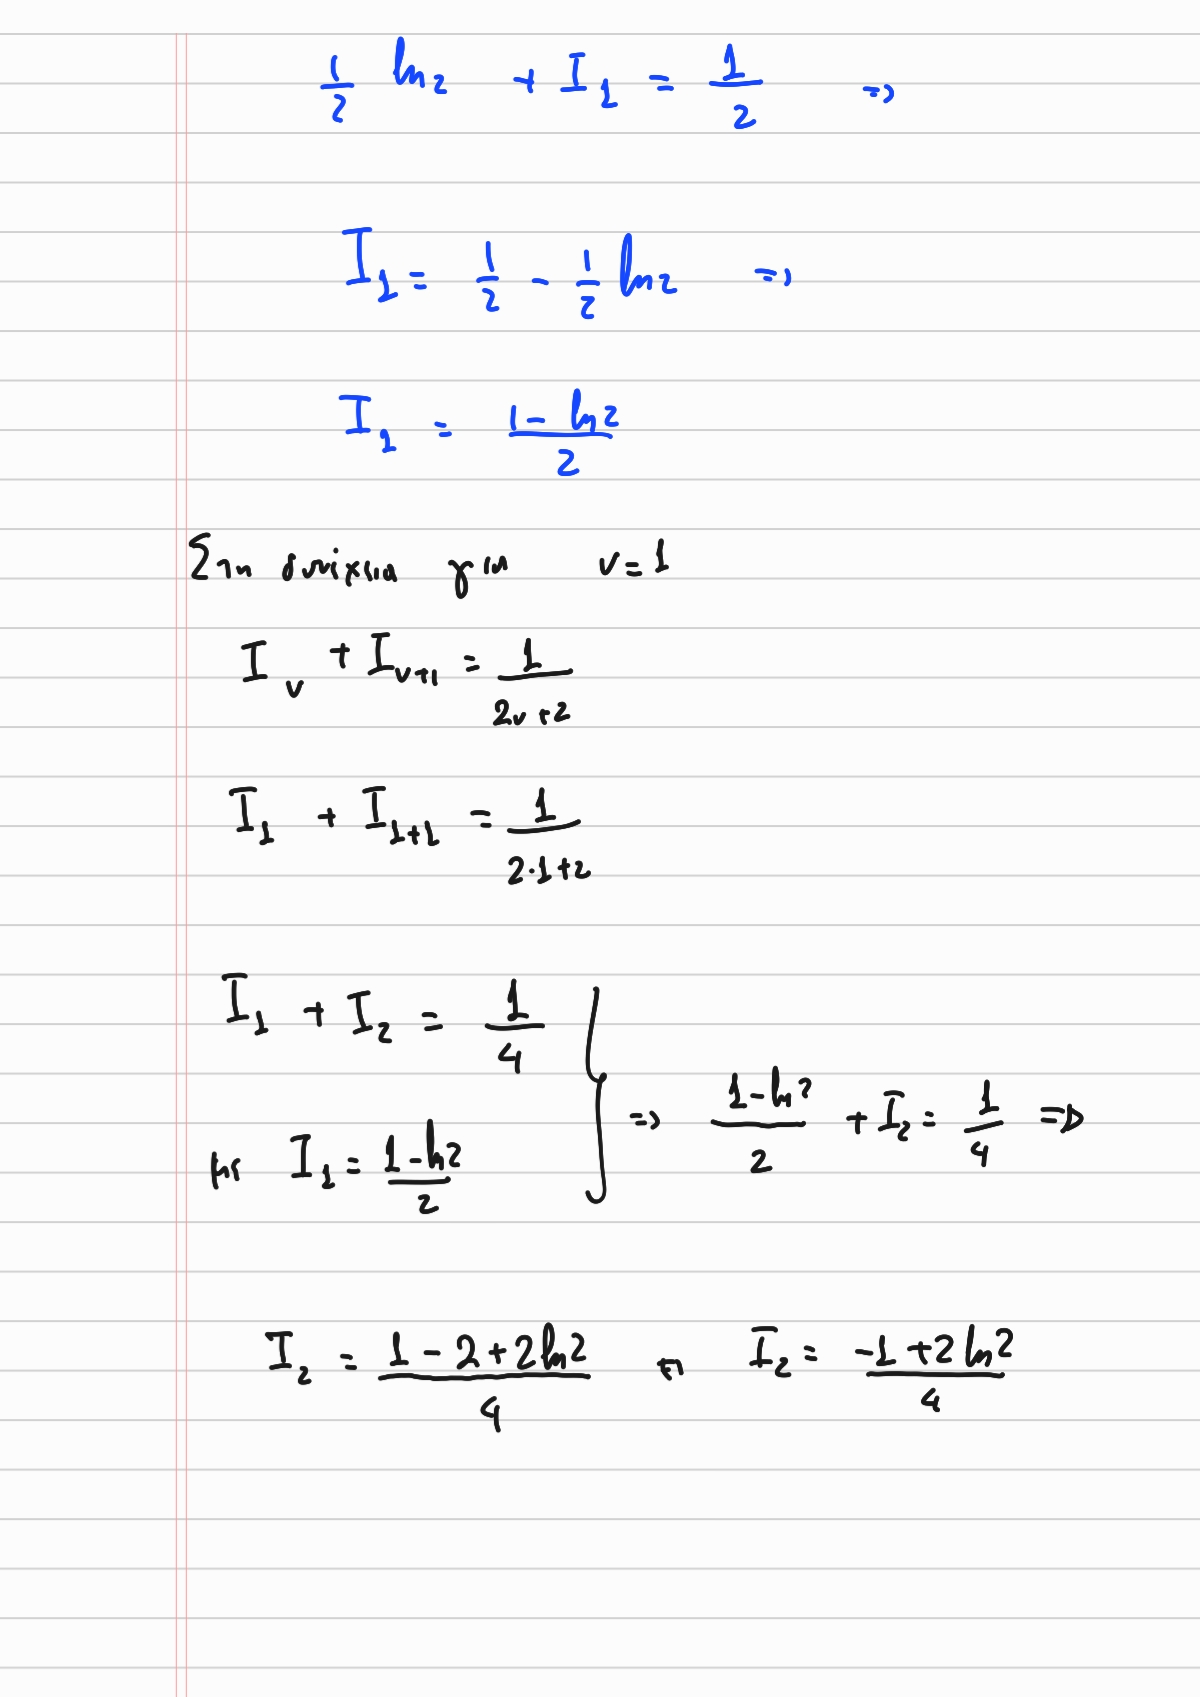 1/2 ln2 + I₁ = 1/2 =>
I₁ = 1/2 - 1/2 ln2 =>
I₁ = (1 - ln2)/2
Στη συνέχεια για ν=1
I_ν + I_{ν+1} = 1/(2ν+2)
I₁ + I_{1+1} = 1/(2·1+2)
I₁ + I₂ = 1/4
με I₁ = (1-ln2)/2 } => (1-ln2)/2 + I₂ = 1/4 =>
I₂ = (1-2+2ln2)/4 ή I₂ = (-1+2ln2)/4